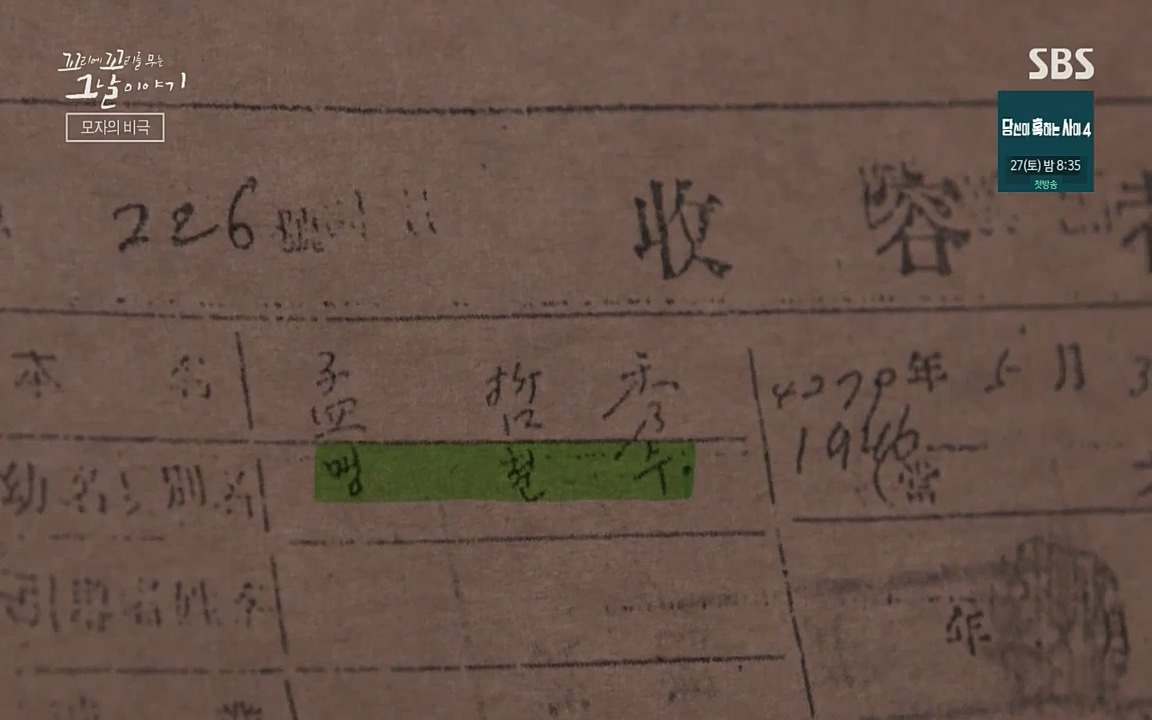 꼬리에 꼬리를 무는
그날 이야기
모자의 비극
SBS
당신이 혹하는 사이 4
27(토) 밤 8:35
첫방송
226號
收容者
本 名
孟 哲 秀
4279年 5月 3
맹 철 수
1946
幼名、別名
年 月